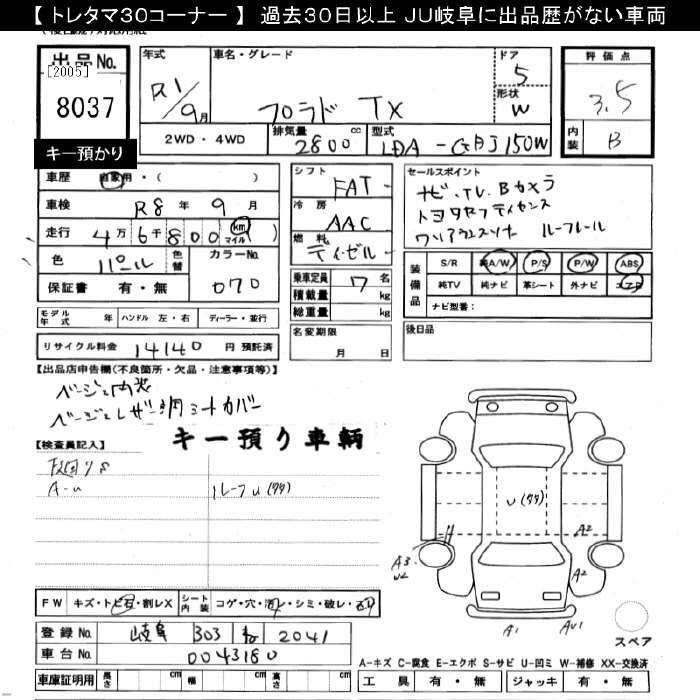 【 トレタマ30コーナー 】 過去30日以上 JU岐阜に出品歴がない車両
出品No.
[2005]
8037
キー預かり
年式
R1/9月
車名・グレード
プラド TX
ドア
5
形状
W
評価点
3.5
内装
B
2WD・4WD
排気量
2800 cc
型式
LDA-GDJ150W
車歴
自家用・( )
車検
R8 年 9 月
走行
4万6千800 km マイル
色
パール
色替
カラーNo.
070
保証書 有・無
モデル年式 年
ハンドル 左・右
ディーラー・並行
リサイクル料金 14140 円 預託済
シフト
FAT
冷房
AAC
燃料
ディーゼル
乗車定員 7 名
積載量 kg
総重量 kg
名変期限
月 日
セールスポイント
ナビ、TV、Bカメラ
トヨタセフティセンス
ルーフレール
装備品
S/R 純A/W P/S P/W ABS
純TV 純ナビ 革シート 外ナビ エアB
ナビ型番:
後日品
【出品店申告欄(不良箇所・欠品・注意事項等)】
ベージュ内装
ベージュレザー調シートカバー
キー預り車輌
【検査員記入】
A-u
ルーフu(タタ)
U(タタ)
A2
A3
U2
A2
A1
AU1
スペア
FW キズ・トビ石・割レX
シート内装 コゲ・穴・汚レ・シミ・破レ・切レ
登録No. 岐阜 303 な 2041
車台No. 0043180
車庫証明用 長さ cm 幅 cm 高さ cm
A-キズ C-腐食 E-エクボ S-サビ U-凹ミ W-補修 XX-交換済
工具 有・無 ジャッキ 有・無